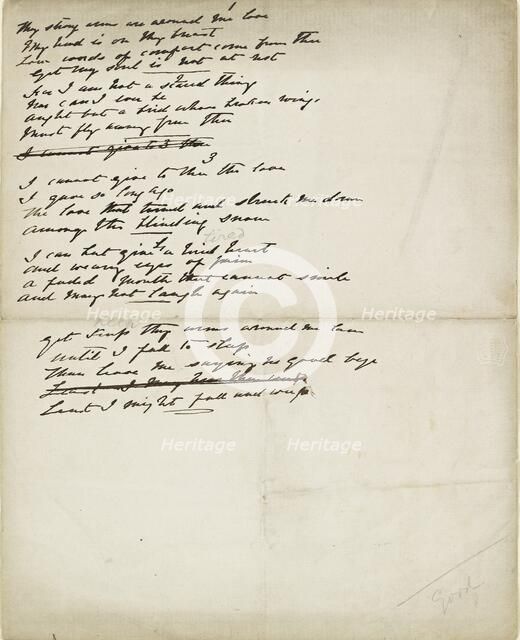 Thy strong arms are around me love
My head is on thy breast
Low words of comfort come from thee
Yet my soul is not at rest
For I am not a startled thing
Nor can I ever be
aught but a bird whose broken wing
Must fly away from thee
I cannot give to thee
3
I cannot give to thee the love
I gave so long ago
The love that turned and struck me down
Amongst the blinding snow
tired
I can but give a tired heart
and weary eyes of pain
a faded mouth that cannot smile
and may not laugh again
Yet keep thy arms around me love
Until I fall to sleep
Then leave me saying no good bye
Least I might fall and weep
Good
Heritage
Heritage
Heritage
Heritage
Heritage
Heritage
C